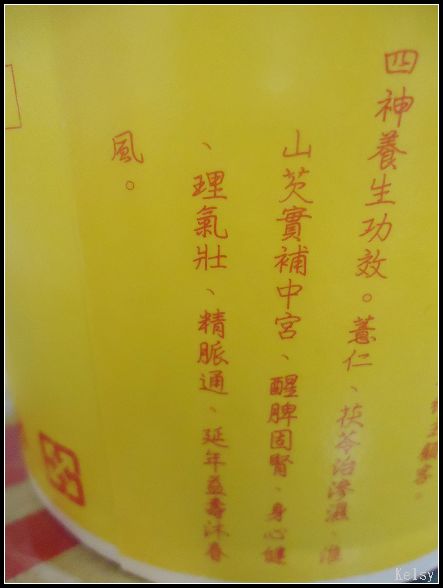 四神養生功效。薏仁、茯苓治滲濕、淮
山芡實補中宮、醒脾固腎、身心健
、理氣壯、精脈通、延年益壽沐春
風。
顧客。
Kelsy